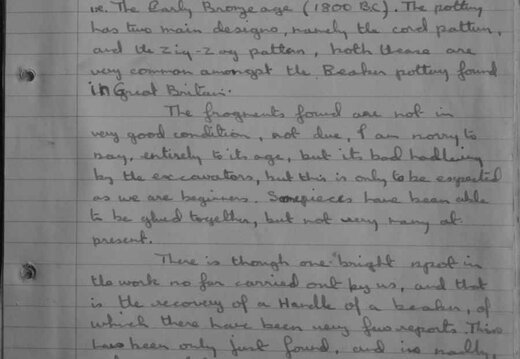 i.e. The Early Bronze age (1800 B.C.). The pottery
has two main designs, namely the cord pattern,
and the Zig-Zag pattern, both these are
very common amongst the Beaker pottery found
in Great Britain.
The fragments found are not in
very good condition, not due, I am sorry to
say, entirely to its age, but its bad handleing
by the excavators, but this is only to be expected
as we are beginners. Some pieces have been able
to be glued together, but not very many at
present.
There is though one bright spot in
the work so far carried out by us, and that
is the recovery of a Handle of a beaker, of
which there have been very few reports. This
has been only just found, and is really,